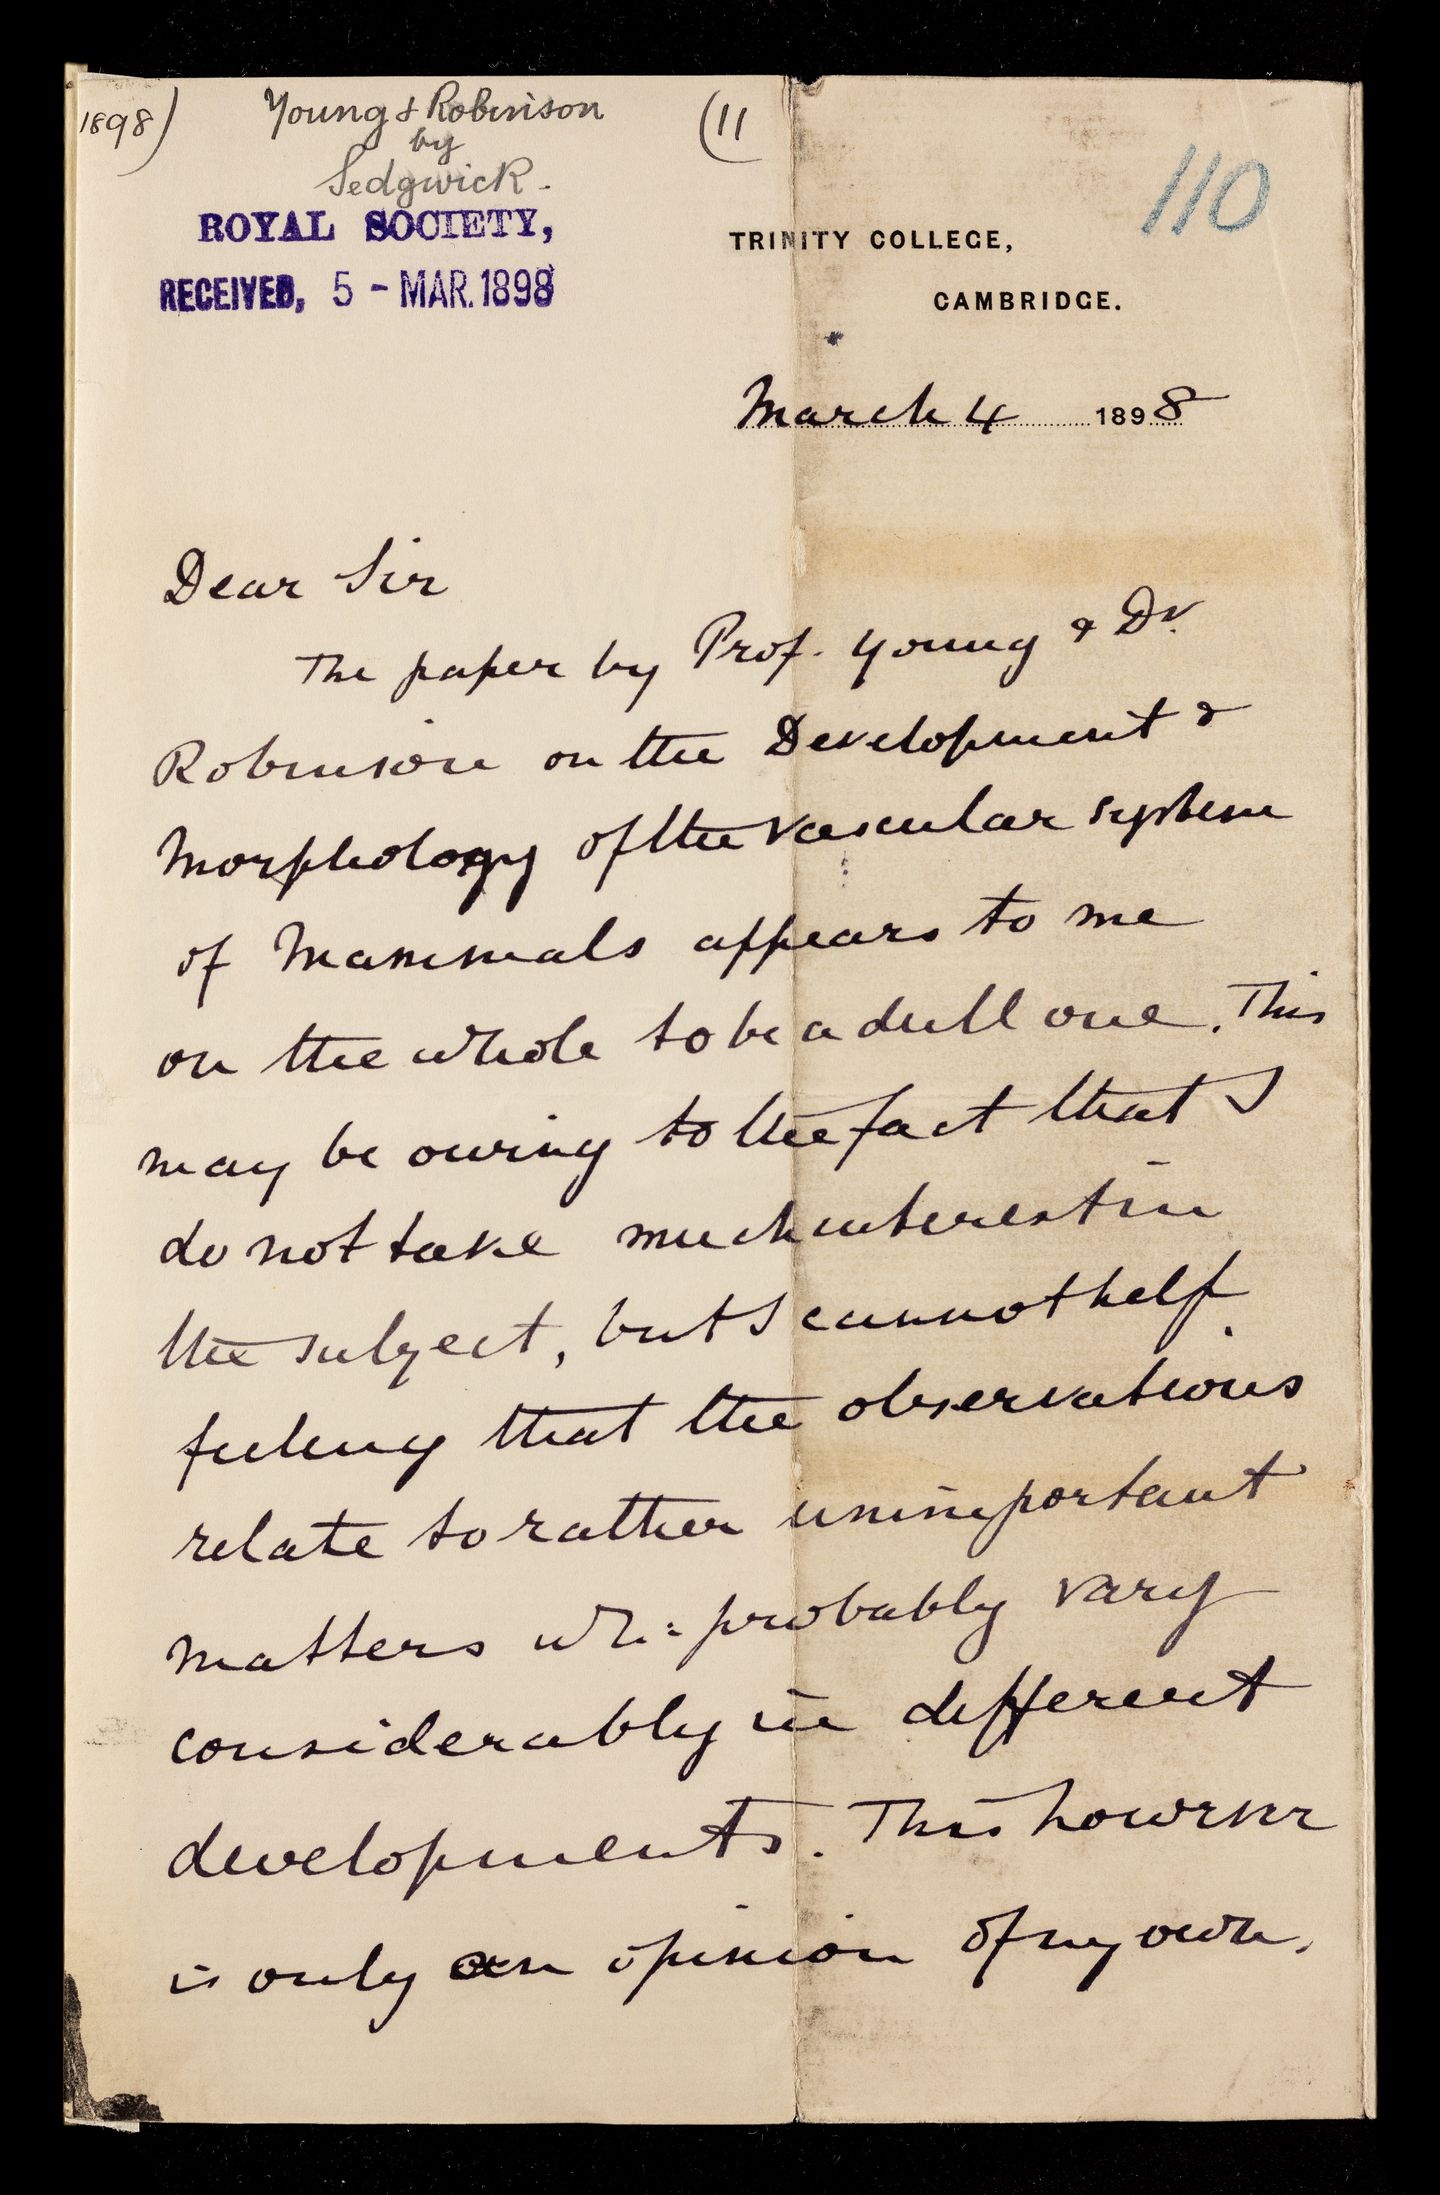 1898) Young & Robinson (11
by
Sedgwick.
110
ROYAL SOCIETY,
RECEIVED, 5 - MAR. 1898
TRINITY COLLEGE,
CAMBRIDGE.
March 4 1898
Dear Sir
The paper by Prof. Young & Dr.
Robinson on the Development &
Morphology of the vascular system
of Mammals appears to me
on the whole to be a dull one. This
may be owing to the fact that I
do not take much interest in
the subject, but I cannot help
feeling that the observations
relate to rather unimportant
matters wh: probably vary
considerably in different
developments. This however
is only an opinion of my own.